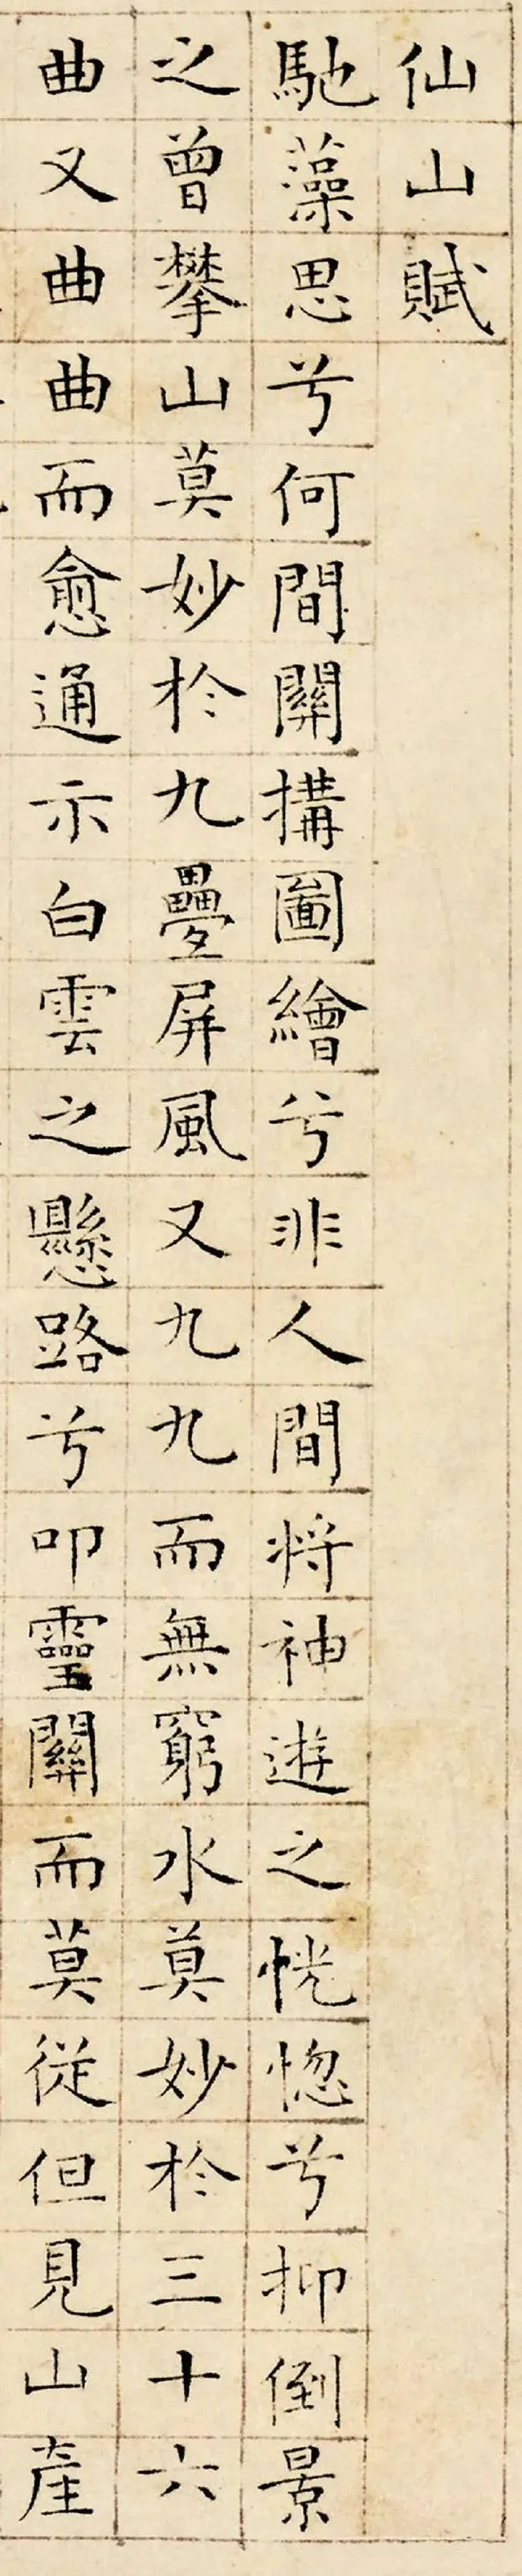 仙山賦
馳藻思兮何間關搆圖繪兮非人間将神遊之恍惚兮抑倒景
之曾攀山莫妙於九疊屏風又九九而無窮水莫妙於三十六
曲又曲曲而愈通示白雲之懸路兮叩靈關而莫從但見山産